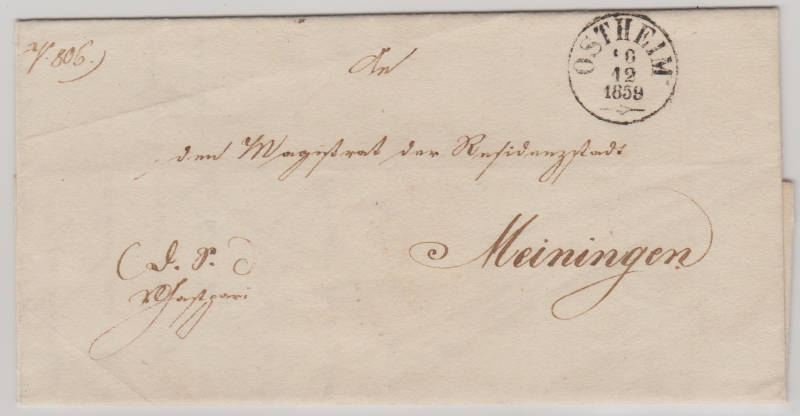 806.)
OSTHEIM
12
1859
An
den Magistrat der Residenzstadt
Meiningen
D. S.